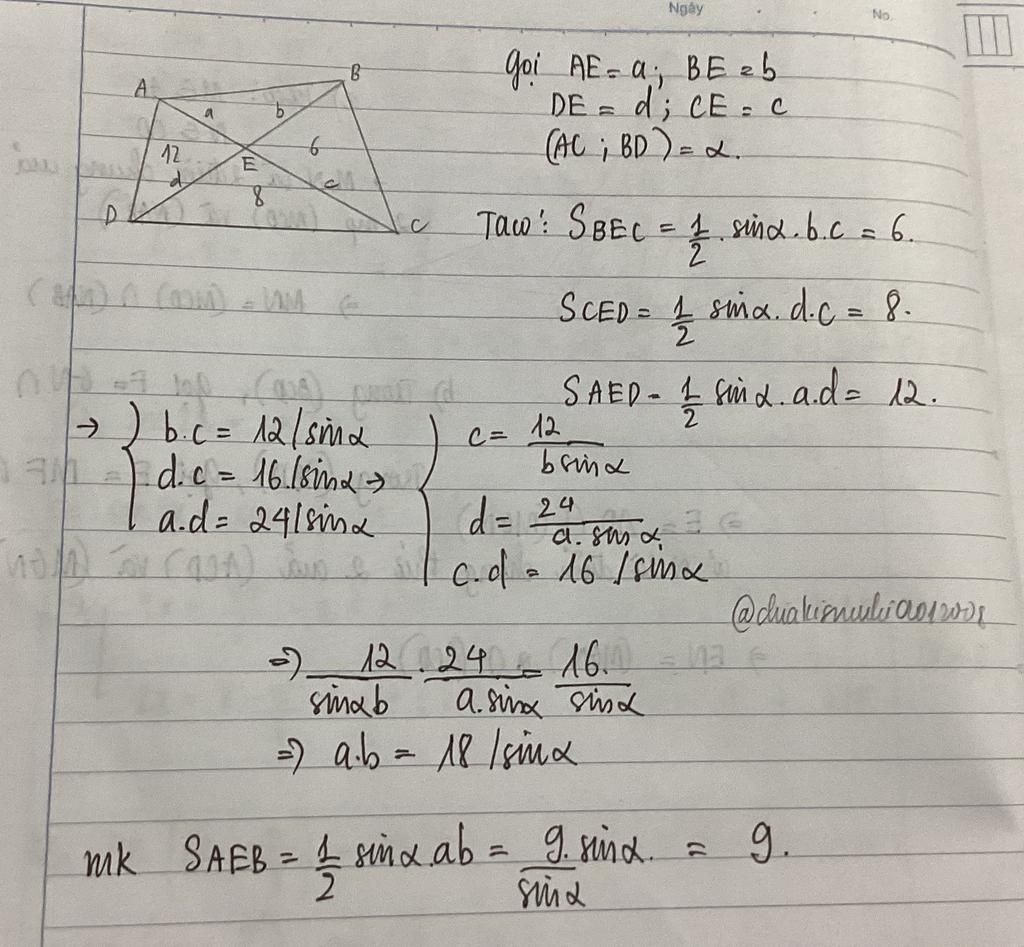 Ngày
No.
A
B
a
b
12
E
6
d
8
c
D
C
gọi AE = a; BE = b
DE = d; CE = c
(AC; BD) = α.
Taco': SBEC = 1/2 . sinα. b.c = 6.
SCED = 1/2 sinα. d.c = 8.
SAED = 1/2 sinα. a.d = 12.
→ { b.c = 12/sinα
d.c = 16/sinα →
a.d = 24/sinα
{ c = 12/(b sinα)
d = 24/(a. sinα)
c.d = 16/sinα
=> 12/(sinαb) . 24/(a.sinα) = 16/sinα
=> a.b = 18/sinα
mk SAEB = 1/2 sinα.ab = 9.sinα/sinα = 9.